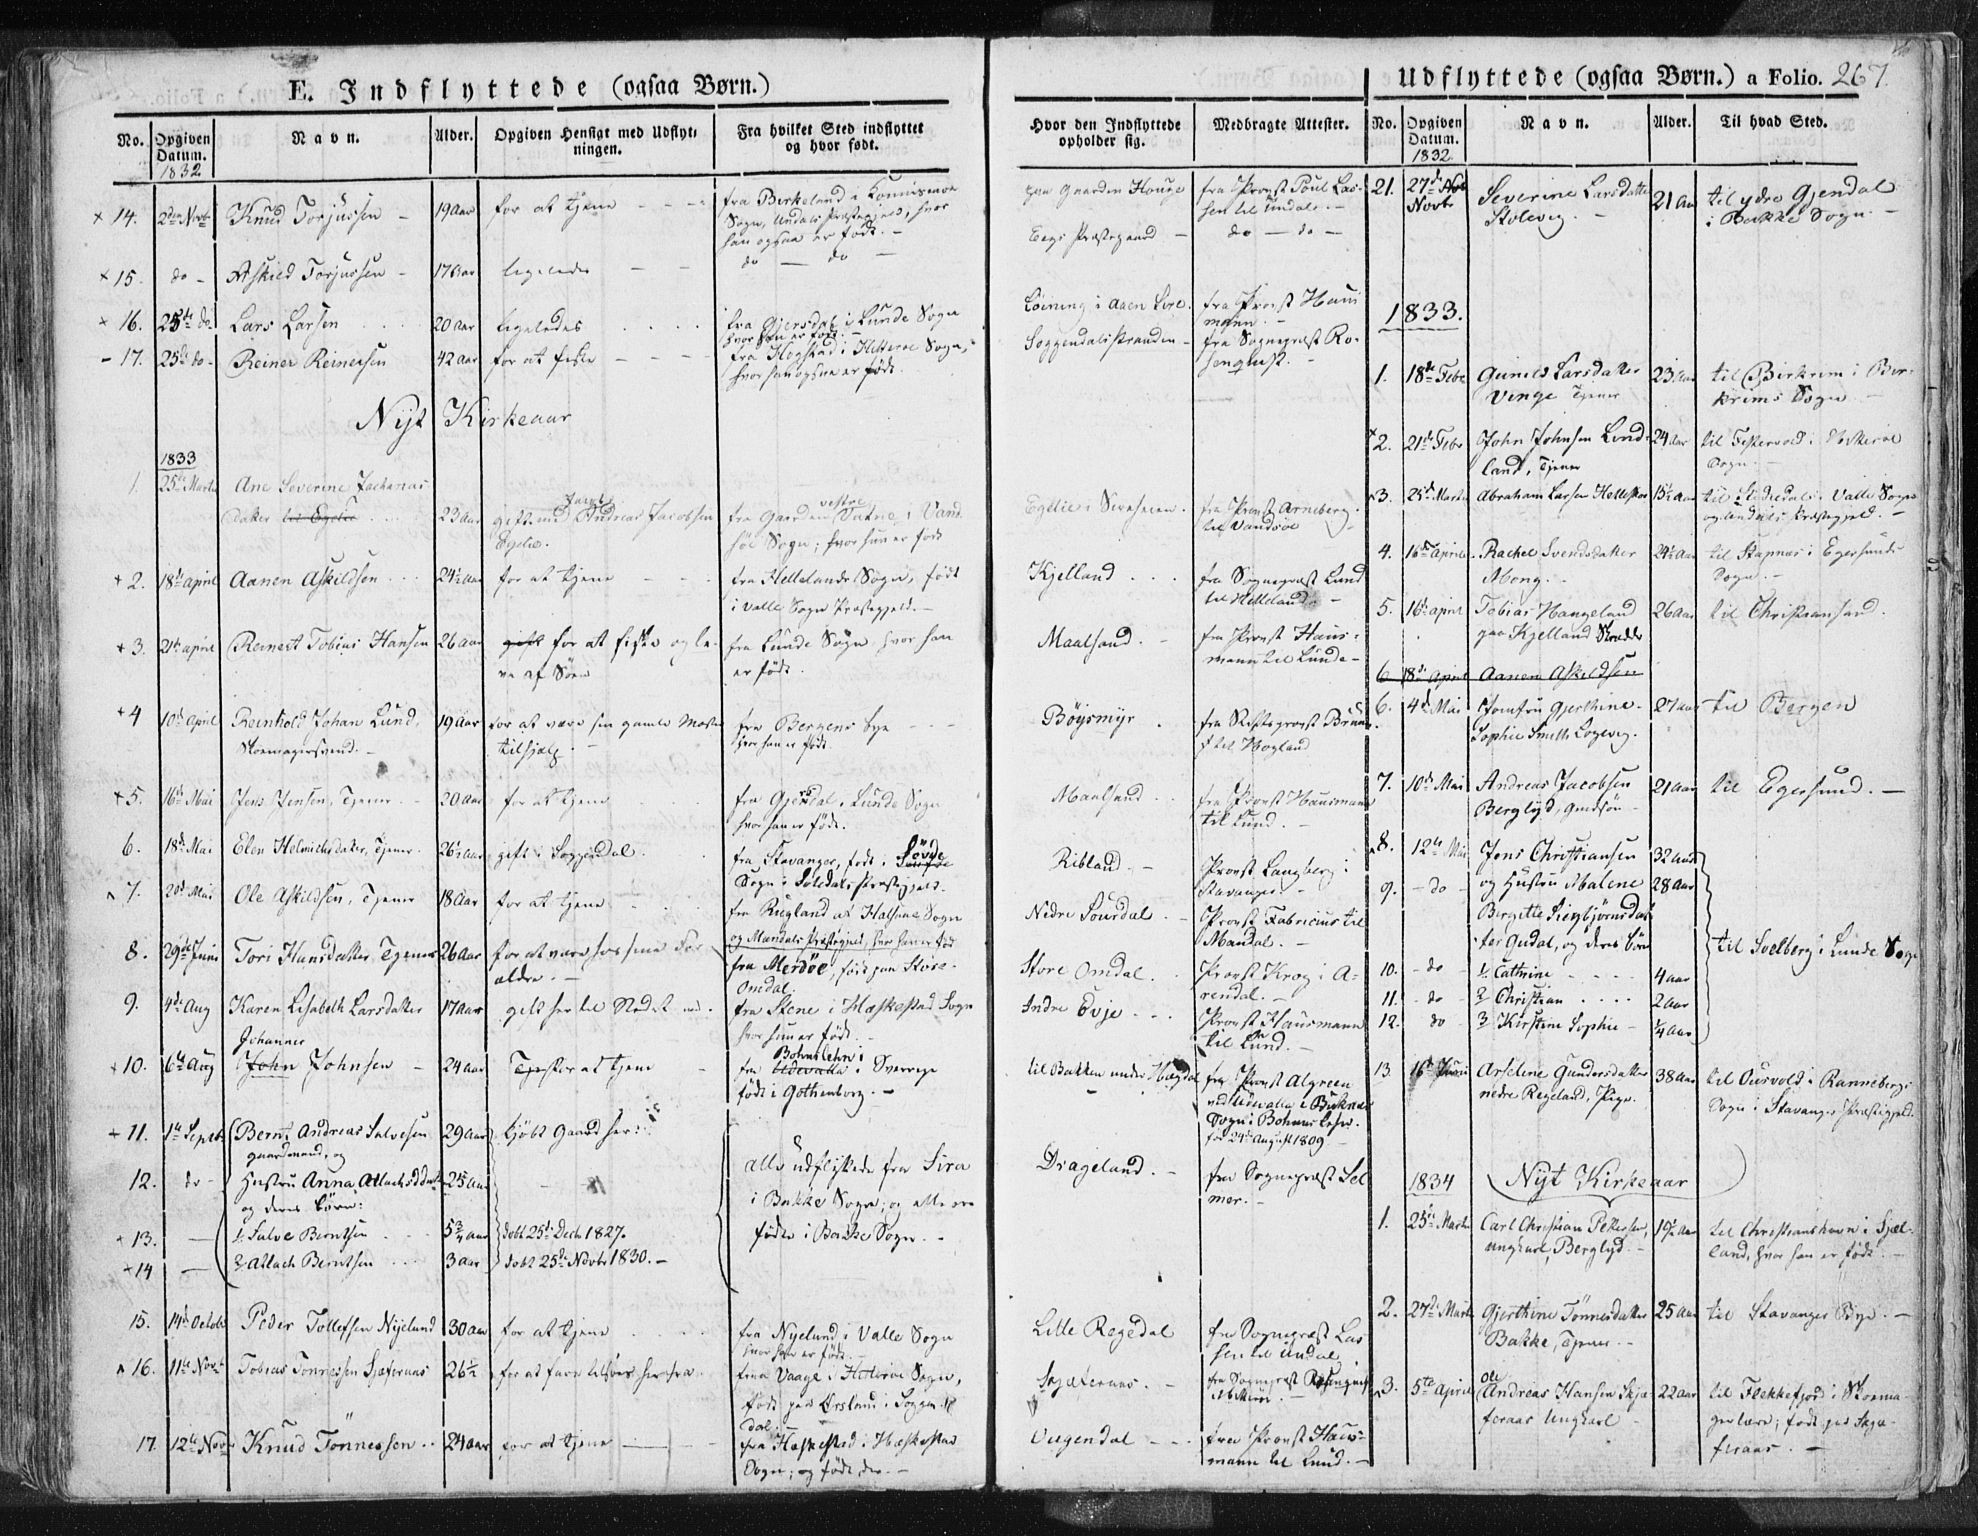 E. Indflyttede (ogsaa Børn.)
No. Opgiven Datum. 1832 Navn. Alder. Opgiven Hensigt med Udflytningen. Fra hvilket Sted indflyttet og hvor født.
× 14. 2den Novbr Knud Torjussen - 19 Aar for at tjene - - - fra Birkeland i
Sogn, Undals Præstegjeld, hvor
han ogsaa er født. -
× 15. do - Askild Torjussen - 17 Aar ligeledes - - do - do -
× 16. 25de do Lars Larsen 20 Aar ligeledes fra Gjersdal i Lunde Sogn
hvor han er født.
- 17. 25de do - Reiner Reinersen 42 Aar for at fiske - - - fra Hogstad i Hitterøe Sogn,
hvor han ogsaa er født.
Nyt Kirkeaar
1833
1. 25de Marts Ane Severine Zacharias
datter 23 Aar gift med Andreas Jacobsen fra Gaarden vestre Vatne i
Egelie. Sogn; hvor hun er født
+ 2. 18de April Aanen Askildsen 24½ Aar for at tjene - - fra Hellelands Sogn, født
i Valle Sogn Præstegjeld. -
+ 3. 21de April Reinert Tobias Hansen 26 Aar gift for at fiske og le- fra Lunde Sogn hvor han
ve af Søen er født.
+ 4 10de April Reinhold Johan Lund, 19 Aar for at være sin gamle Moder fra Bergens Bye - - -
Skomagersvend. - tilhjælp. - hvor han er født.
+ 5. 16de Mai Jens Jensen, Tjener - 20 Aar for at tjene fra Gjersdal i Lunde Sogn
hvor han er født.
6. 18de Mai Elen Helmichsdatter, Tjener 26½ Aar gift i Soggendal. fra Stavanger, født i Søvde
Sogn i Præstegjeld.
7. 20de Mai Ole Askildsen, Tjener 18 Aar for at tjene fra Rugland af Halsaae Sogn
og Mandals Præstegjeld, hvor han er født
8. 29de Juni Tori Hansdatter Tjener 26 Aar for at være hos sine For- fra Merdøe, født paa Store-
ældre. - Omdal.
9. 4de Aug Karen Lisabeth Larsdatter 17 Aar gift her til Stedet fra Stene i Hæskestad Sogn
hvor hun er født. -
+ 10. 6te Aug Johannes John Johnsen - 24 Aar for at tjene fra Bohuslehn i Udevalla i Sverrige
født i Gothenborg. -
+ 11. 1te Septbr Bernt Andreas Salvesen 29 Aar kjøbt Gaard her
gaardmand, og alle udflyttede fra Sira
12. do - Hustru Anna Atlachsdatter 25 Aar i Bakke Sogn, og alle ere
og deres Børn: fødte i Bakke Sogn. -
+ 13. - 1, Salve Berntsen 5¾ Aar døbt 25de Decbr 1827.
+ 14 - 2, Atlach Berntsen 3 Aar døbt 25de Novbr 1830. -
15. 14de Octobr Peder Tollefsen Nyelund 30 Aar for at tjene fra Nyelund i Valle Sogn
hvor han er født. -
16. 11te Novbr Tobias Tønnessen Skjæferaas 26½ for at fare tilsøes herfra fra Vaage i Hitterøe Sogn,
født paa Ørsland i Soggen-
dal. -
17 12te Novbr Knud Tønnessen 24 Aar for at tjene fra Hæskestad i Hæskestad
Sogn; og født der. -
Hvor den Indflyttede opholder sig. Medbragte Attester.
paa Gaarden Houge fra Provst Poul Las-
sen til Undal. -
Eegs Præstegaard - do - do -
i Aaen Sire. fra Provst Haus
mann. -
Soggendalsstranden - fra Sognepræst Ro-
senquist. -
Egelie i Sireheien. fra Provst Arneberg
til
Kjelland fra Sognepræst Lund
til Helleland. -
Maalsand. - fra Provst Haus-
mann til Lunde -
Bøysmyr fra Stiftsprovst
til Hogland
Maalsand fra Provst Hausmann
til Lund. -
Ribland. - Provst Langberg i
Stavanger. -
Nedre Sourdal Provst Fabricius til
Mandal. -
Store Omdal. Provst Krog i A-
rendal. -
Indre Evje Provst Hausmann
til Lund. -
til Bakken under Hægdal fra Provst Algreen
ved Udevalla i
Sogn i Bohuus Lehn.
før 24de August 1809
Drageland. - fra Sognepræst Sel
mer. -
Lille Regedal fra Sognepræst Las
sen til Undal
Skjæferaas. - fra Sognepræst Rosenquist
i Hitterøe.
Vuegendal fra Provst Haus-
mann til Lund. -
Udflyttede (ogsaa Børn.) a Folio. 267.
No. Opgiven Datum. 1832. Navn. Alder. Til hvad Sted.
21. 27de Novbr Severine Larsdatter 21 Aar til ydre Gjendal
Stolevig. - i Bakke Sogn. -
1833.
1. 18de Febr Gunild Larsdatter 23 Aar til Birkrem i Bir-
Vinge Tjener krems Sogn -
× 2. 21de Febr John Johnsen Lind- 24 Aar til i Hitterøe
land, Tjener Sogn. -
3. 25de Marts Abraham Larsen Helleskar 15½ Aar til i Valle Sogn
og Undals Præstegjeld. -
4. 16de April Rachel Svendsdatter 24½ Aar til Stapnes i Egersunds
Mong. - Sogn. -
5. 16de April Tobias Haugeland 26 Aar til Christiansand.
paa Kjelland Skrædder
6 18de April Aanen Askildsen
6. 4de Mai Jomfru Gjerthine 27 Aar til Bergen
Sophie Smith Logevig.
7. 10de Mai Andreas Jacobsen 21 Aar til Egersund. -
Berglyd, -
8. 12te Mai Jens Christiansen 32 Aar
9. - do - og Hustru Malene 28 Aar
Bergitte Siegbjørnsdat
ter Gudal, og deres Børn til Svelberg i Lunde Sogn
10. - do - 1, Cathrine 4 Aar
11. - do 2, Christian 2 Aar
12. do 3, Kirstine Sophie - ¼ Aar
13. 16de Juni Arseline Gundersdatter 38 Aar til Ousvold i Ranneberg-
nedre Regeland, Pige. Sogn i Stavanger Præstegjeld.
1834 Nyt Kirkeaar
1. 25de Marts Carl Christian Pettersen, 19½ Aar til Christianshavn i Sjæl-
ungkarl, Berglyd. - land, hvor han er født. -
2. 27de Marts Gjerthine Tønnesdatter 25 Aar til Stavanger Bye. -
Bakke, Tjener. -
3. 5te April Ole Andreas Hansen Skjæ- 22 Aar til Flekkefjord i Skoma-
feraas Ungkarl - gerlære; født paa Skjæ-
feraas. -